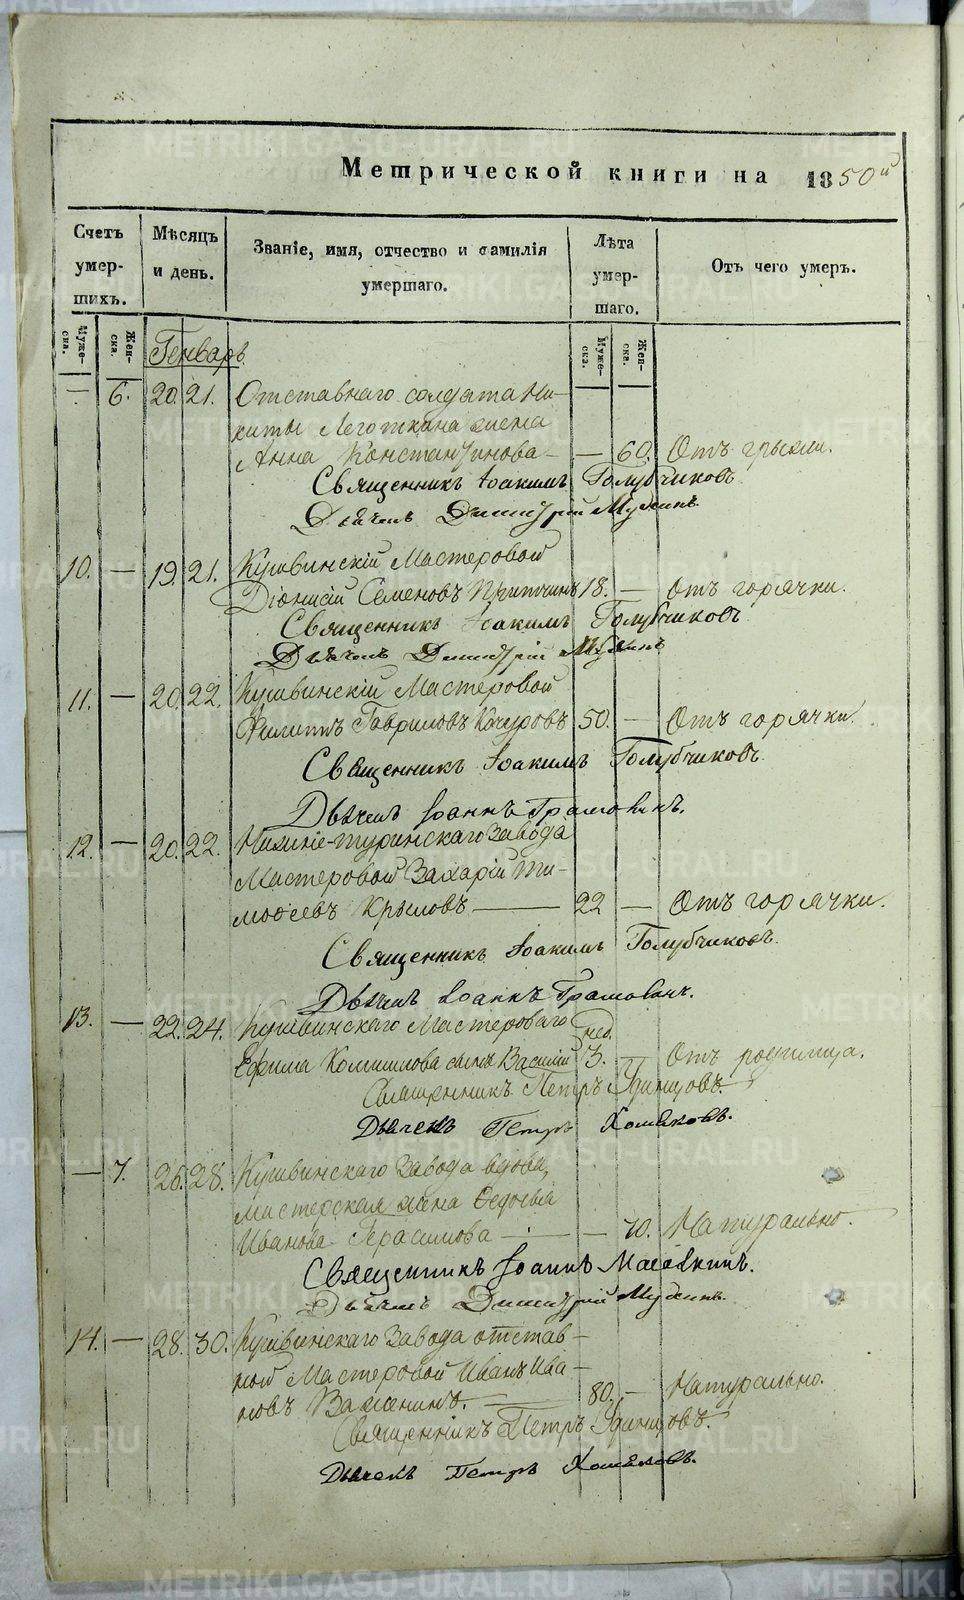 Метрической книги на 1850й
Счетъ умер- шихъ.
Мѣсяцъ и день.
Званіе, имя, отчество и фамилія умершаго.
Лѣта умер- шаго.
Отъ чего умеръ.
Муже- ска.
Жен- ска.
Генварь
Муже- ска.
Жен- ска.
— 6. 20. 21. Отставнаго солдата Ни-
киты Леготкина жена
Анна Константинова — — 60. Отъ грыжи.
Священникъ Іоакимъ Голубчиковъ
Дьячекъ Димитрій Мухинъ
10. — 19. 21. Кушвинскій Мастеровой
Діонисій Семеновъ Притчинъ 18. — Отъ горячки.
Священникъ Іоакимъ Голубчиковъ
Дьячекъ Димитрій Мухинъ
11. — 20. 22. Кушвинскій Мастеровой
Филиппъ Гавриловъ Качуровъ 50. — Отъ горячки.
Священникъ Іоакимъ Голубчиковъ.
Дьячекъ Іоаннъ Грамовичъ.
12. — 20. 22. Нижне-туринскаго Завода
Мастеровой Захарій Ти-
моѳеевъ Крыловъ — 22 — Отъ горячки.
Священникъ Іоакимъ Голубчиковъ.
Дьячекъ Іоаннъ Грамовичъ.
13. — 22. 24. Кушвинскаго Мастероваго нед.
Ефима сынъ Василій 3. — Отъ родимца.
Священникъ Петръ Удинцовъ
Дьячекъ Петръ Хомяковъ.
— 7. 26. 28. Кушвинскаго Завода вдова,
мастерская жена Ѳедосья
Иванова Герасимова — — 70. Натурально.
Священникъ Іоаннъ
Дьячекъ Димитрій Мухинъ.
14. — 28. 30. Кушвинскаго Завода отстав-
ной Мастеровой Иванъ Ива-
новъ Важенинъ. — 80. — Натурально.
Священникъ Петръ Удинцовъ.
Дьячекъ Петръ Хомяковъ.
METRIKI.GASO-URAL.RU